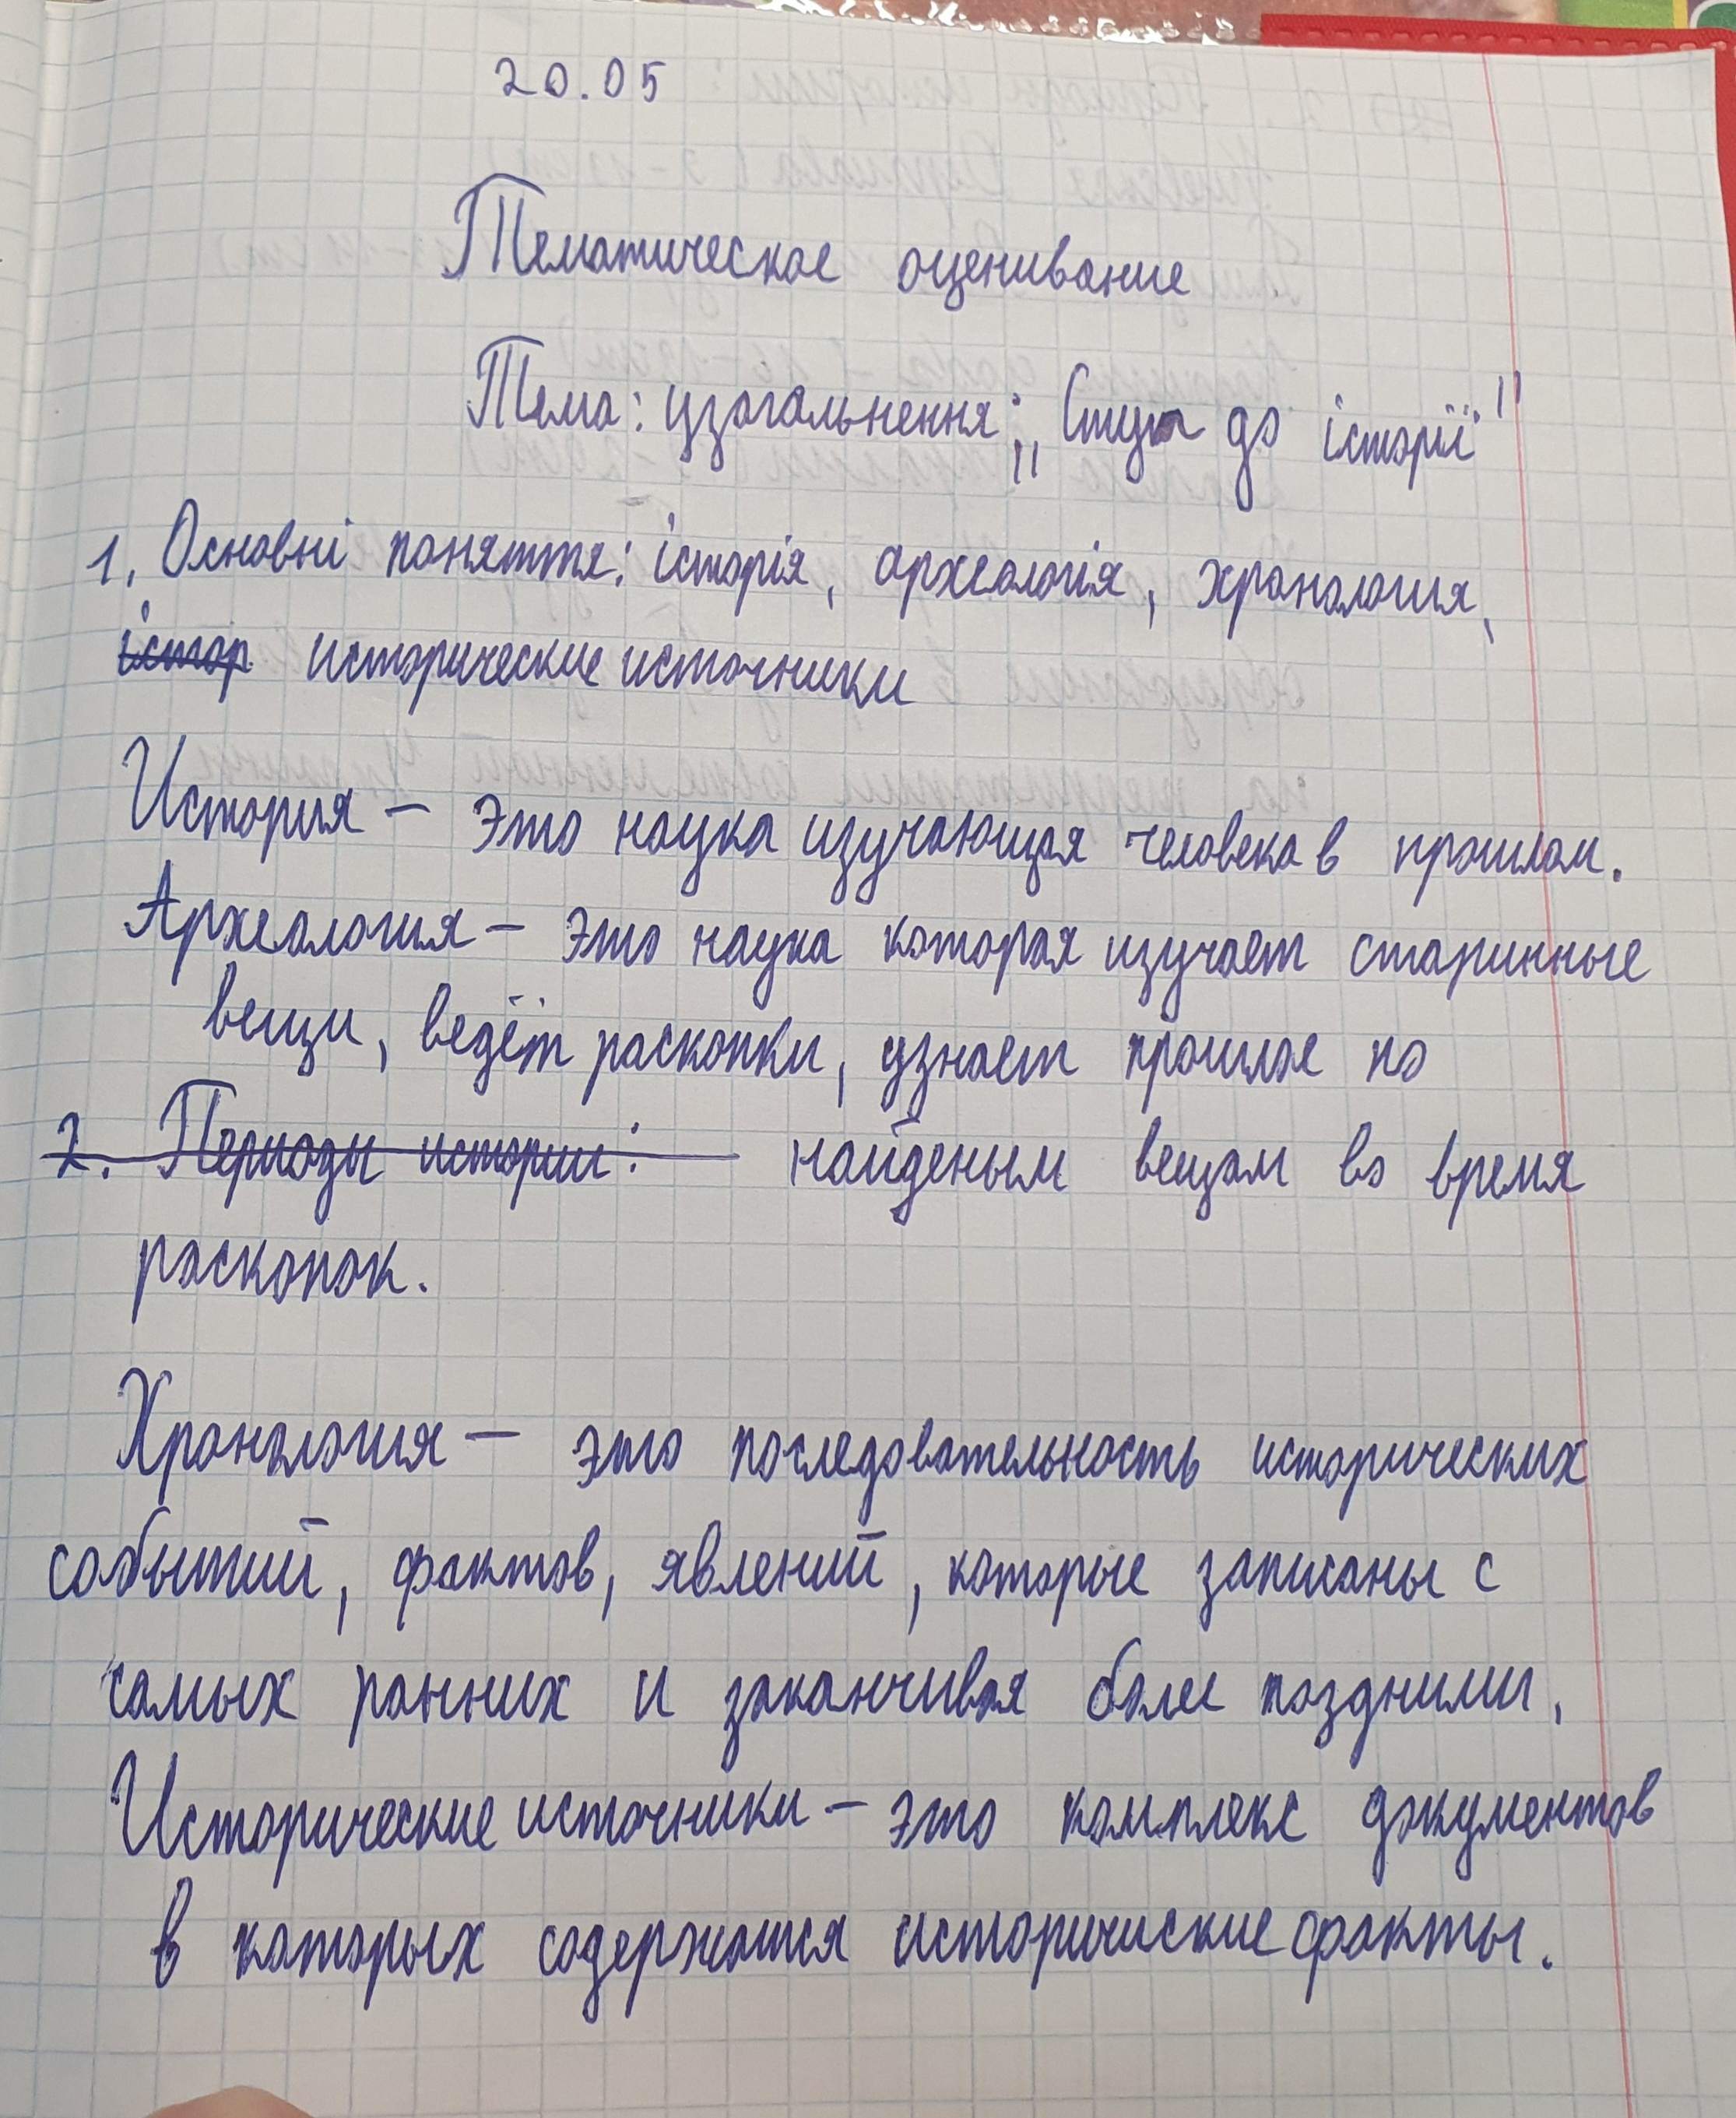 20.05
Тематическое оценивание
Тема: узагальнення: „Ступ до історії"
1. Основні поняття: історія, археологія, хронология,
істор исторические источники
История – это наука изучающая человека в прошлом.
Археология – это наука которая изучает старинные
вещи, ведёт раскопки, узнает прошлое по
2. Периоды истории: найденым вещам во время
раскопок.
Хронология – это последовательность исторических
событий, фактов, явлений, которые записаны с
самых ранних и заканчивая более поздними.
Исторические источники – это комплекс документов
в которых содержатся историчиские факты.